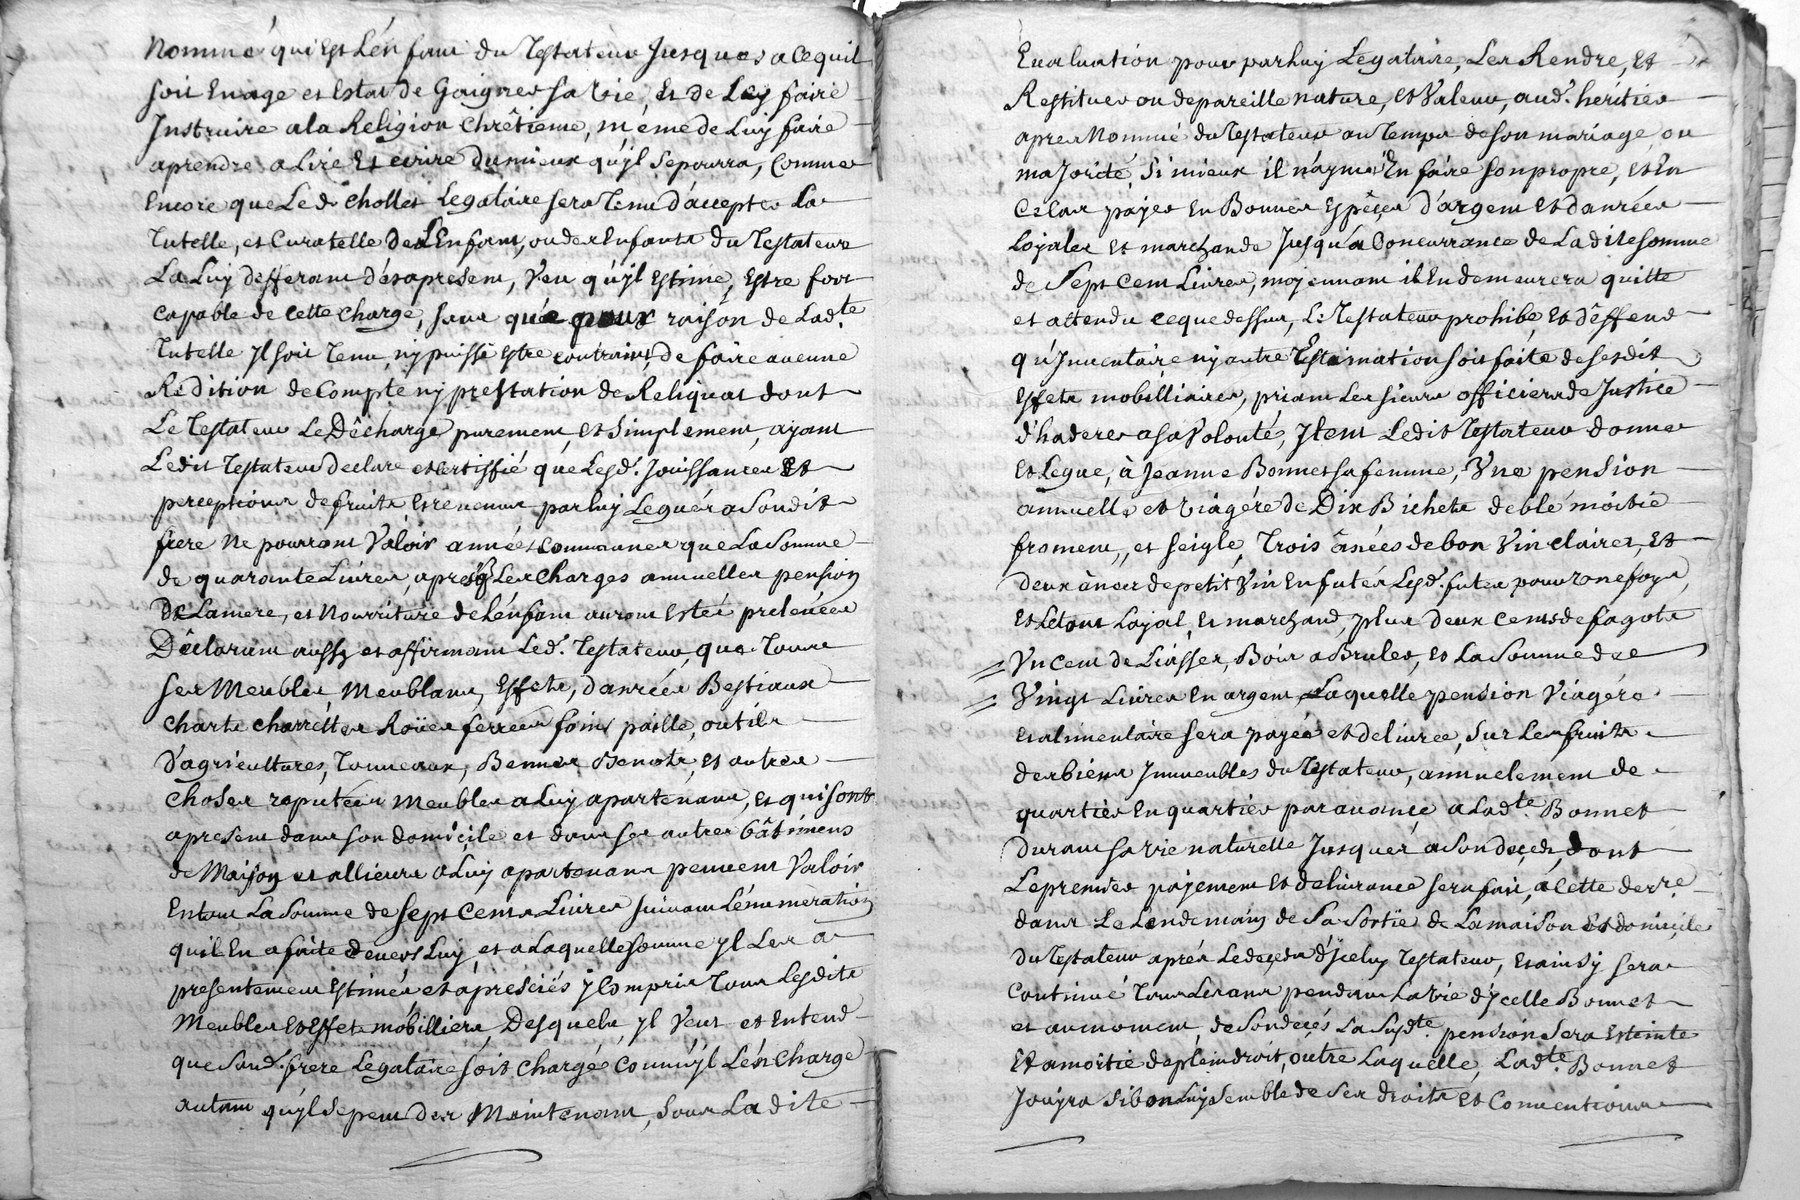 Nommé qui est l'enfant du Testateur Jusques a ce quil
soit En age et Estat de Gaigner sa vie, Et de Luy faire
Instruire a la Religion Chrêtiene, même de Luy faire
aprendre a Lire Et écrire du mieux qu'yl se pourra, Comme
Encore que Le d. Chollet Legataire sera Tenu d'accepter La
Tutelle, et Curatelle de L'Enfant, ou des Enfants du Testateur
La Luy defferant dés apresent, Veu qu'yl Estime, Estre fort
Capable de Cette Charge, sans que pour raison de Lad.te
Tutelle Yl soit Tenu, ny puisse Estre contraint de faire aucune
Rédition de Compte ny prestation de Reliquat dont
Le Testateur Le Dêcharge purement, et Simplement, ayant
Ledit Testateur Declare et certiffié que Lesd. Jouissances Et
perceptions de fruits, Et révenus par luy Legués a Sondit
frere Ne pourront Valoir année Commune que La Somme
de quarante Livres, après q Les Charges annuelles pension
De La mere, et Nourriture de L'énfant auront Esteé prelevées
Déclarant aussy et affirmant Led. Testateur, que Tous
ses Meubles Meublans, Effets, danrées Bestiaux
Charts Charrêttes Roües ferrées foin paille, outils
d'agricultures, Tonneaux, Bennes Benots, Et autres
Choses reputées Meubles a Luy apartenans, et qui sont
apresent dans son domicile et dans ses autres bâtimens
de Maison et allieurs a Luy apartenans peuvent Valoir
En tout La Somme de Sept Cents Livres suivant L'énumeration
quil En a faite devers Luy, et a Laquelle Somme Yl Les a
presentement Estimés et apréciés y Compris Tous Lesdits
Meubles Et Effets mobilliers Desquels Yl Veut et Entend
que Sond. frere Legataire soit Chargée Comm'yl L'én Charge
autant qu'yl Se peut des Maintenant, Sous La dite
Evaluation pour par luy Legataire, Les Rendre, Et
Restituer ou de pareille nature, et Valeur, aud. heritier
apres Nommé du Testateur au Temps de son mariage ou
majorité, Si mieux il n'ayme En faire son propre, et En
Ce Cas payer En Bonnes Espéces d'argent Et danrées
Loyales Et marchande Jusqu'a Concurrance de La dite Somme
de Sept Cent Livres, moyennant il En demeurera quitte
et attendu ce que dessus, Le Testateur prohibe, Et d'effend
qu'Inventaire ny autre Estimation soit faite de sesdits
Effets mobilliaires, priant Les sieurs officiers de Justice
d'haderer a sa Volonté, Item Ledit Testateur donne
Et Legue, à Jeanne Bonnet sa femme, Une pension
annuelle et Viagére de Dix Bichets de blé moitié
froment, et seigle, Trois ânées de bon Vin clairet, Et
deux ânées de petit Vin En futés Lesd. futes pour une foys,
Et Le tout Loyal, Et marchand, plus deux cents de fagots
Un Cent de Liasses, Bois a Bruler, et La Somme de
Vingt Livres En argent, Laquelle pension Viagére
Et alimentaire sera payée et delivrée, Sur Les fruits
des biens Immeubles du Testateur, annuelement de
quartier En quartier par avance a Lad.te Bonnet
durant sa vie naturelle Jusques a Son decés, dont
Le premier payement Et delivrance sera fait, à Cette derre
dans Le Lendemain de Sa Sortie de La maison et domicile
du Testateur après Le decés d'ycelui Testateur, Et ainsy sera
Continué Tous Les ans pendant La vie d'ycelle Bonnet
et au moment de Son decés La Susd.te pension sera Esteinte
Et amortie de plein droit, outre Laquelle, Lad.te Bonnet
Jouyra Si bon Luy Semble de Ses droits Et Conventions